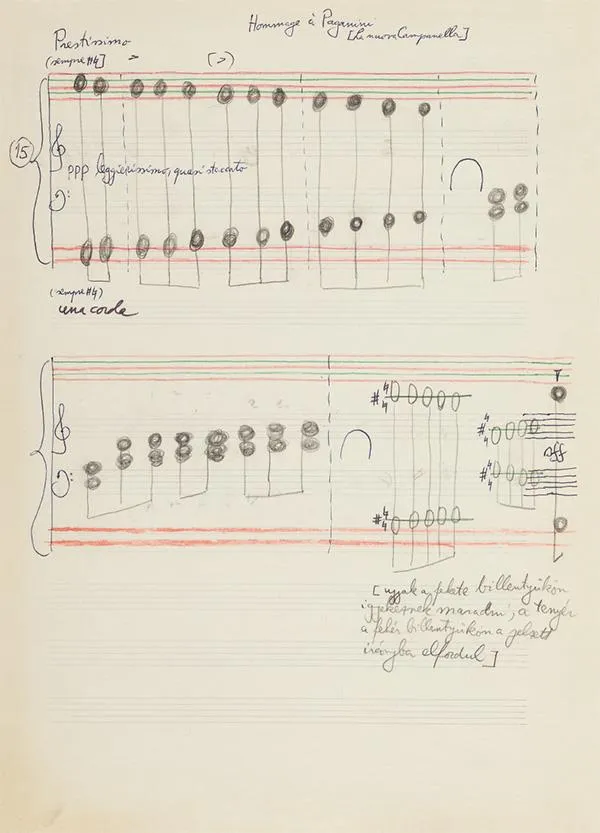 Hommage à Paganini
[La nuova Campanella]
Prestissimo
(sempre #4]
[>]
15
ppp leggierissimo, quasi staccato
(sempre #4)
una corda
sff
[ujjak a fekete billentyűkön
igyekeznek maradni, a tenyér
a fehér billentyűkön a jelzett
irányba elfordul]